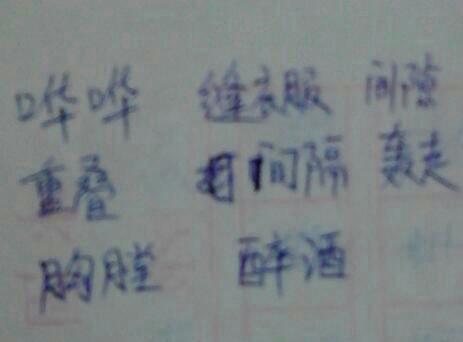 哗哗 缝衣服 间隙
重叠 间隔 轰走
胸膛 醉酒